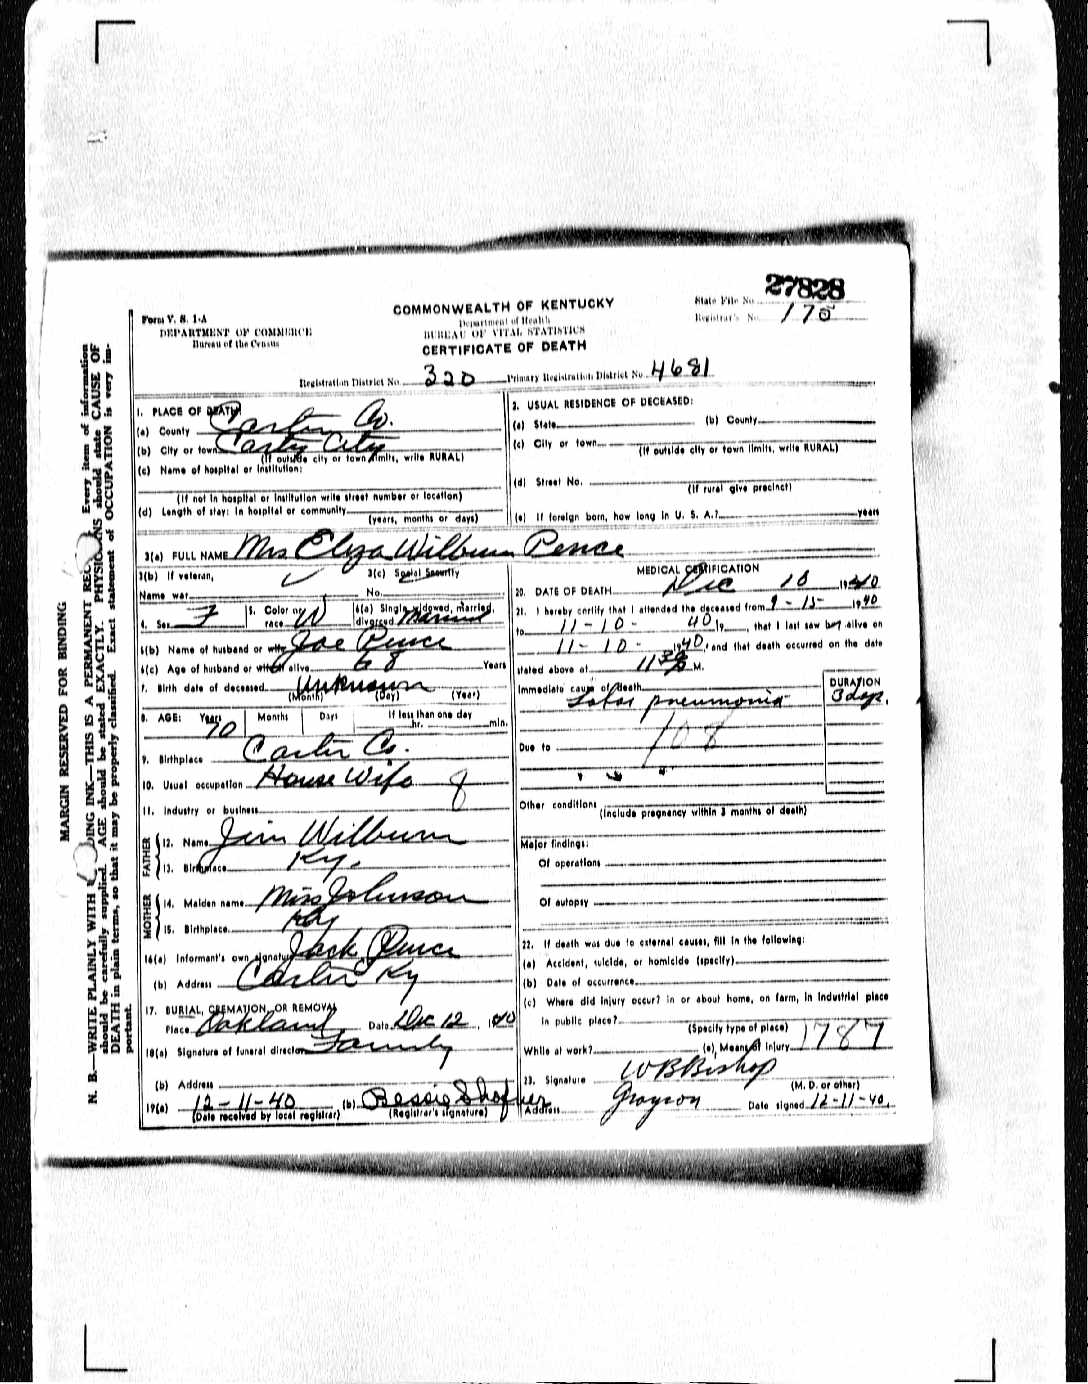 27828
Form V. S. 1-A
COMMONWEALTH OF KENTUCKY
State File No.
DEPARTMENT OF COMMERCE
Department of Health
Registrar's No. 175
Bureau of the Census
BUREAU OF VITAL STATISTICS
CERTIFICATE OF DEATH
Registration District No. 320 Primary Registration District No. 4681
MARGIN RESERVED FOR BINDING
N. B.—WRITE PLAINLY WITH DING INK—THIS IS A PERMANENT REC Every item of information
should be carefully supplied. AGE should be stated EXACTLY. PHYSIC NS should state CAUSE OF
DEATH in plain terms, so that it may be properly classified. Exact statement of OCCUPATION is very im-
portant.
1. PLACE OF DEATH
(a) County Carter Co.
(b) City or town Carter City
(If outside city or town limits, write RURAL)
(c) Name of hospital or institution:
(If not in hospital or institution write street number or location)
(d) Length of stay: In hospital or community
(years, months or days)
2. USUAL RESIDENCE OF DECEASED:
(a) State (b) County
(c) City or town
(If outside city or town limits, write RURAL)
(d) Street No.
(If rural give precinct)
(e) If foreign born, how long in U. S. A.? years
3(a) FULL NAME Mrs Eliza Wilburn Pence
3(b) If veteran, 3(c) Social Security
Name war No.
4. Sex F 5. Color or race W 6(a) Single, widowed, married, divorced Married
6(b) Name of husband or wife Joe Pence
6(c) Age of husband or wife if alive 68 Years
7. Birth date of deceased Unknown
(Month) (Day) (Year)
8. AGE: Years Months Days If less than one day
70 hr. min.
9. Birthplace Carter Co.
10. Usual occupation House Wife 8
11. Industry or business
FATHER
12. Name Jim Wilburn
13. Birthplace Ky.
MOTHER
14. Maiden name Miss Johnson
15. Birthplace Ky
16(a) Informant's own signature Jack Pence
(b) Address Carter Ky
17. BURIAL, CREMATION, OR REMOVAL
Place Oakland Date Dec 12, 1940
18(a) Signature of funeral director Family
(b) Address
19(a) 12-11-40 (b) Bessie Shofner
(Date received by local registrar) (Registrar's signature)
MEDICAL CERTIFICATION
20. DATE OF DEATH Dec 10 1940
21. I hereby certify that I attended the deceased from 9-15- 1940
to 11-10- 40 19, that I last saw her alive on
11-10- 1940, and that death occurred on the date
stated above at 11 30 M.
Immediate cause of death DURATION
Lobar pneumonia 3 days.
108
Due to
Other conditions
(Include pregnancy within 3 months of death)
Major findings:
Of operations
Of autopsy
22. If death was due to external causes, fill in the following:
(a) Accident, suicide, or homicide (specify)
(b) Date of occurrence
(c) Where did injury occur? in or about home, on farm, in industrial place
in public place?
(Specify type of place)
While at work? (e) Means of injury 1787
23. Signature W B Bishop
(M. D. or other)
Address Grayson Date signed 12-11-40.